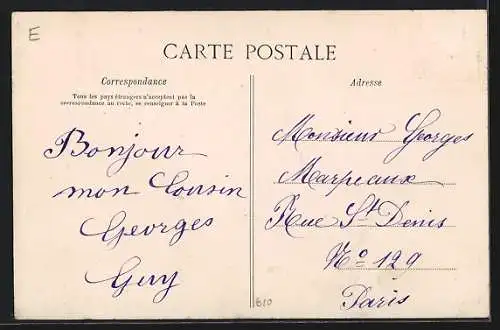 E
CARTE POSTALE
Correspondance
Tous les pays étrangers n'acceptent pas la
correspondance au recto, se renseigner à la Poste
Bonjour
mon Cousin
Georges
Guy
Adresse
Monsieur Georges
Marpeaux
Rue St Denis
No 129
Paris
810